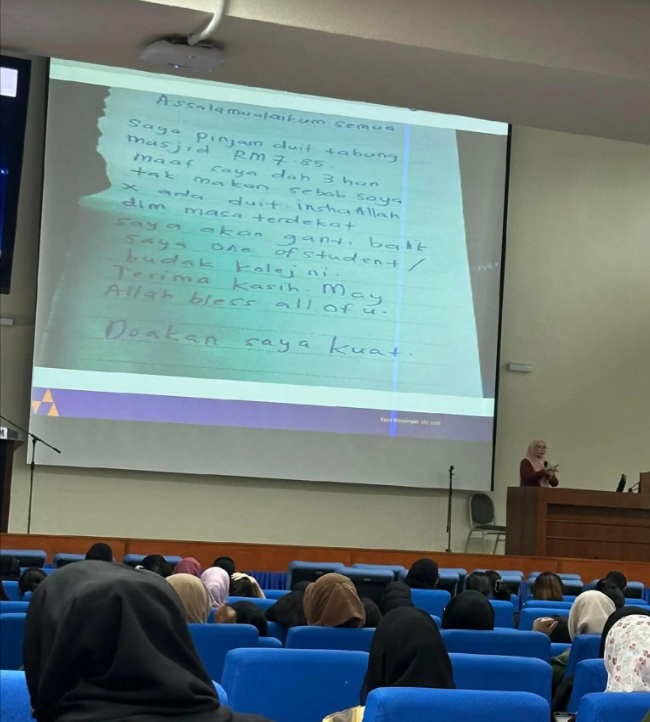 Assalamualaikum semua
saya pinjam duit tabung
masjid RM 7.85
maaf saya dah 3 hari
tak makan sebab saya
x ada duit. inshaAllah
dlm masa terdekat
saya akan ganti balik
saya one of student /
budak kolej ni.
Terima kasih. May
Allah bless all of u.
Doakan saya kuat.